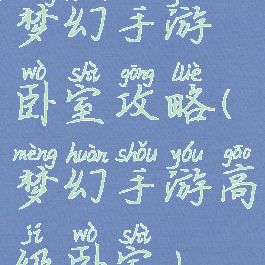 梦幻手游
wò shì gōng lüè
卧室攻略(
mèng huàn shǒu yóu gāo
梦幻手游高
jí wò shì
级卧室)